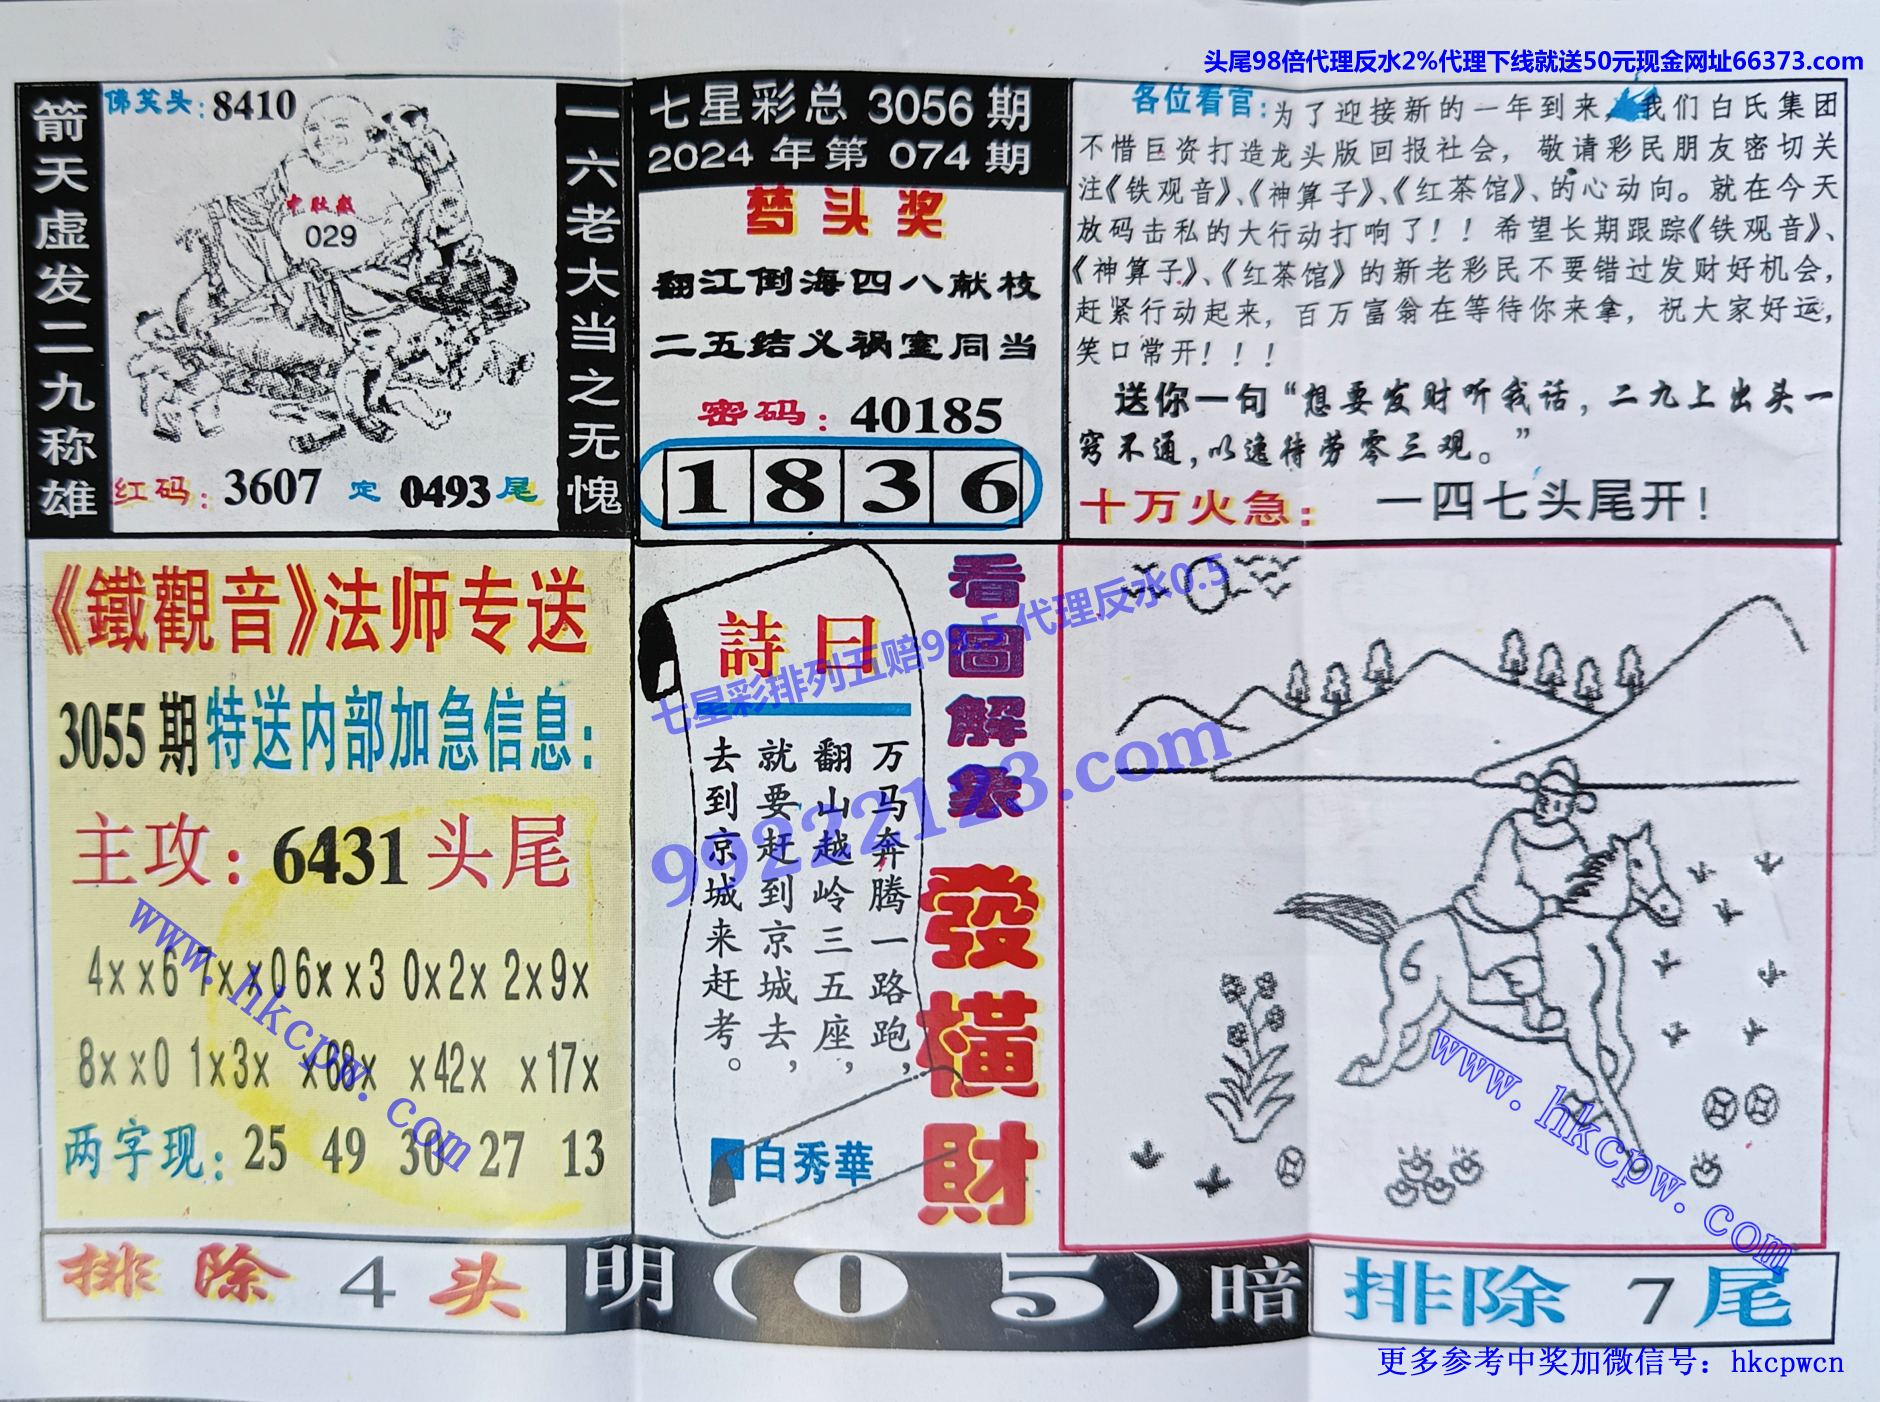 头尾98倍代理反水2%代理下线就送50元现金网址66373.com
箭天虚发二九称雄
佛笑头:8410
中肚藏
029
红码:3607 定 0493尾
一六老大当之无愧
七星彩总 3056 期
2024 年第 074 期
梦头奖
翻江倒海四八献校
二五结义祸室同当
密码:40185
1 8 3 6
各位看官:为了迎接新的一年到来,我们白氏集团
不惜巨资打造龙头版回报社会,敬请彩民朋友密切关
注《铁观音》、《神算子》、《红茶馆》、的心动向。就在今天
放码击私的大行动打响了!!希望长期跟踪《铁观音》、
《神算子》、《红茶馆》的新老彩民不要错过发财好机会,
赶紧行动起来,百万富翁在等待你来拿,祝大家好运,
笑口常开!!!
送你一句“想要发财听我话,二九上出头一
窍不通,以逸待劳零三观。”
十万火急: 一四七头尾开!
《鐵觀音》法师专送
3055期特送内部加急信息:
主攻:6431头尾
4××6 7××0 6××3 0×2× 2×9×
8××0 1×3× ×68× ×42× ×17×
两字现: 25 49 30 27 13
詩曰
万马奔腾一路跑,
翻山越岭三五座,
就要赶到京城去,
去到京城来赶考。
白秀華
看圖解象
發橫財
七星彩排列五赔99.5 代理反水0.5
99222123.com
www.hkcpw.com
www.hkcpw.com
排除 4 头
明(05)暗
排除 7 尾
更多参考中奖加微信号:hkcpwcn